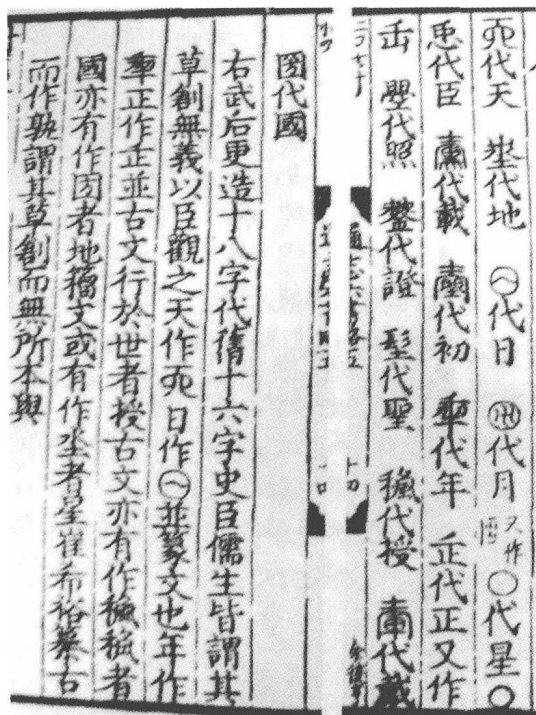 𠀑代天 埊代地 𡆠代日 代月 又作 〇代星 〇
𢘑代臣 𡕀代載 𡔈代初 𠡦代年 𠙺代正又作
𠙺 曌代照 𤯔代證 𨲢代聖 𥠢代授 代戴
圀代國
右武后更造十八字代舊十六字史臣儒生皆謂其
草創無義以臣觀之天作𠀑日作𡆠並篆文也年作
𠡦正作𠙺並古文行於世者授古文亦有作𥠢𥠢者
國亦有作圀者地籀文或有作埊者星崔希裕纂古
而作孰謂其草創而無所本與